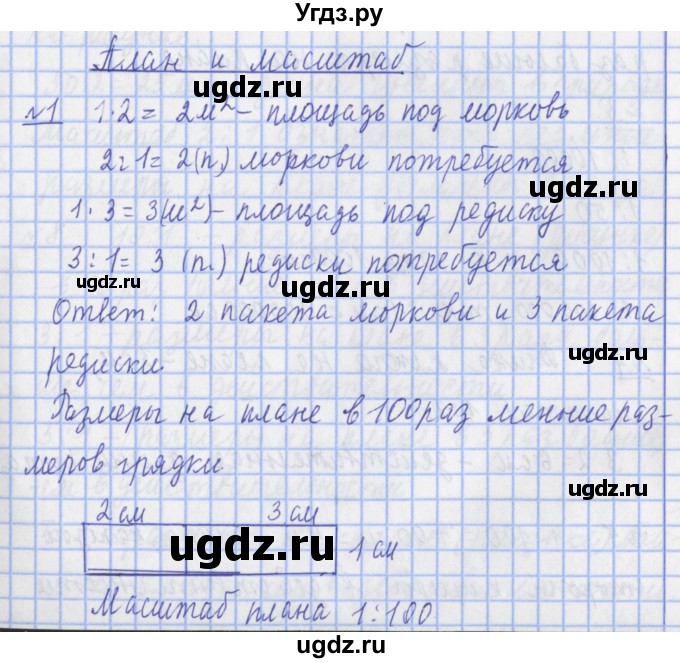 Угдз.ру
План и масштаб
№1 1·2= 2м²- площадь под морковь
2:1= 2(п.) моркови потребуется
1·3=3(м²)- площадь под редиску
3:1= 3 (п.) редиски потребуется
ugdz.ru ugdz.ru ugdz.ru
Ответ: 2 пакета моркови и 3 пакета
редиски.
Размеры на плане в 100 раз меньше раз-
меров грядки
ugdz.ru
2 см 3 см
ugdz.ru 1 см
Масштаб плана 1:100
ugdz.ru